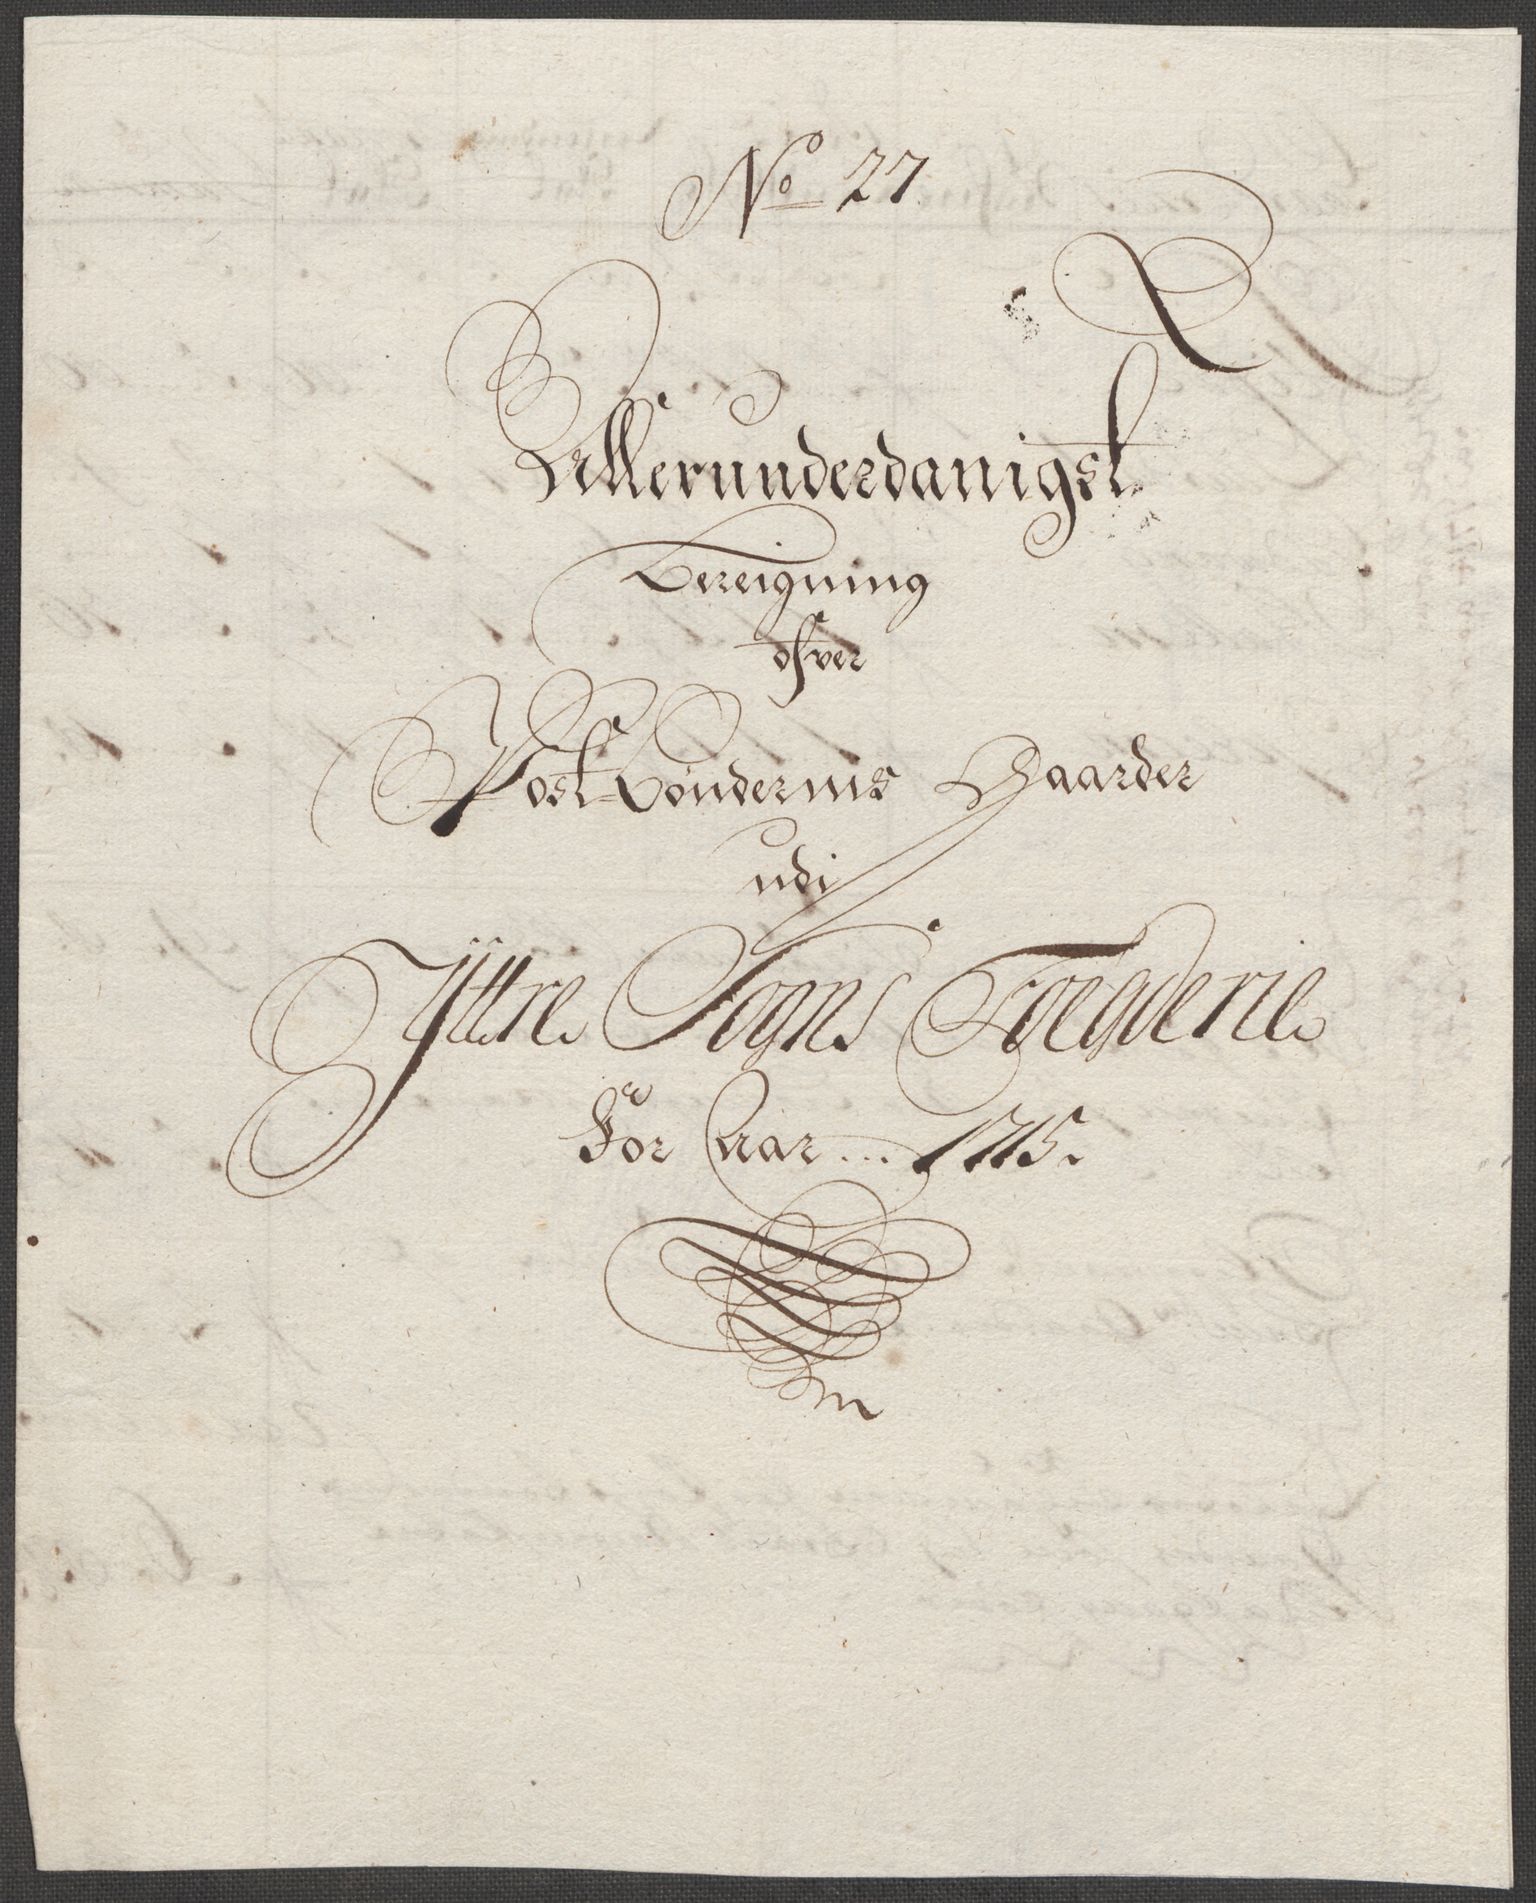 No 27
R
Allerunderdanigst
Bereigning
ofver
Post-Bøndernis Gaarder
udi
Ÿttre Sogns Foegderie
For Aar ... 1715.